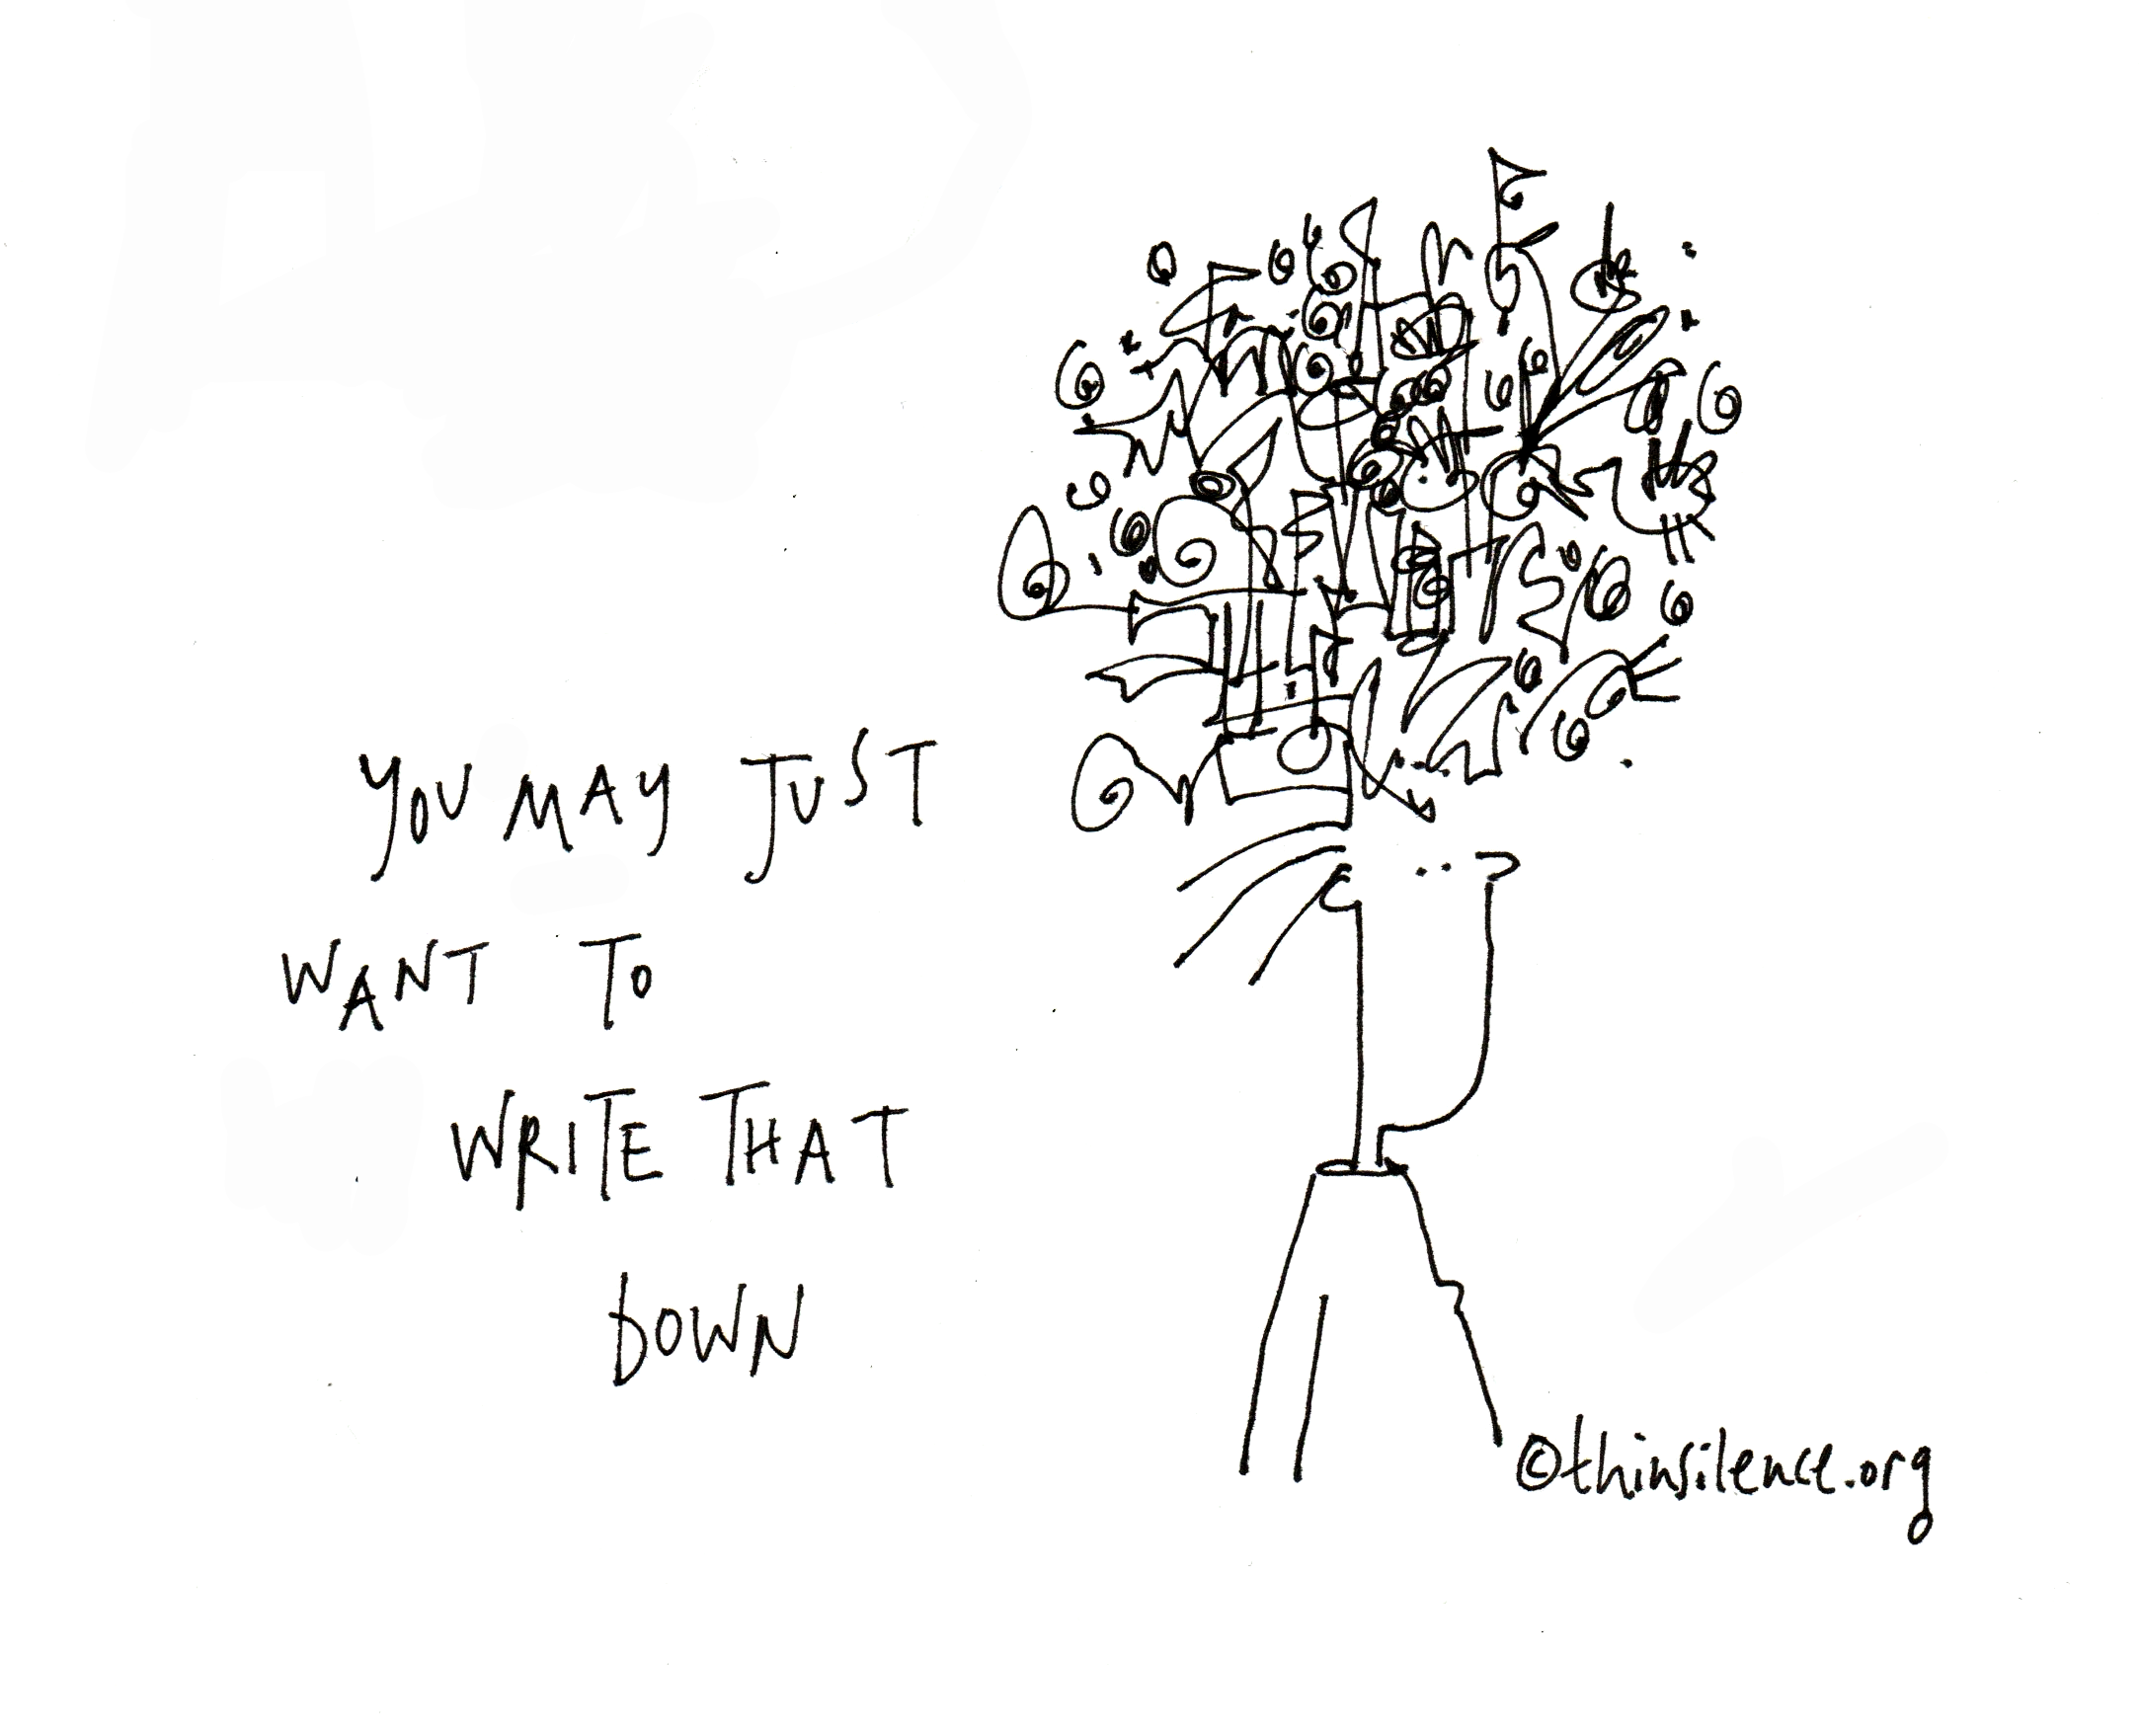 YOU MAY JUST
WANT TO
WRITE THAT
DOWN
©thinsilence.org